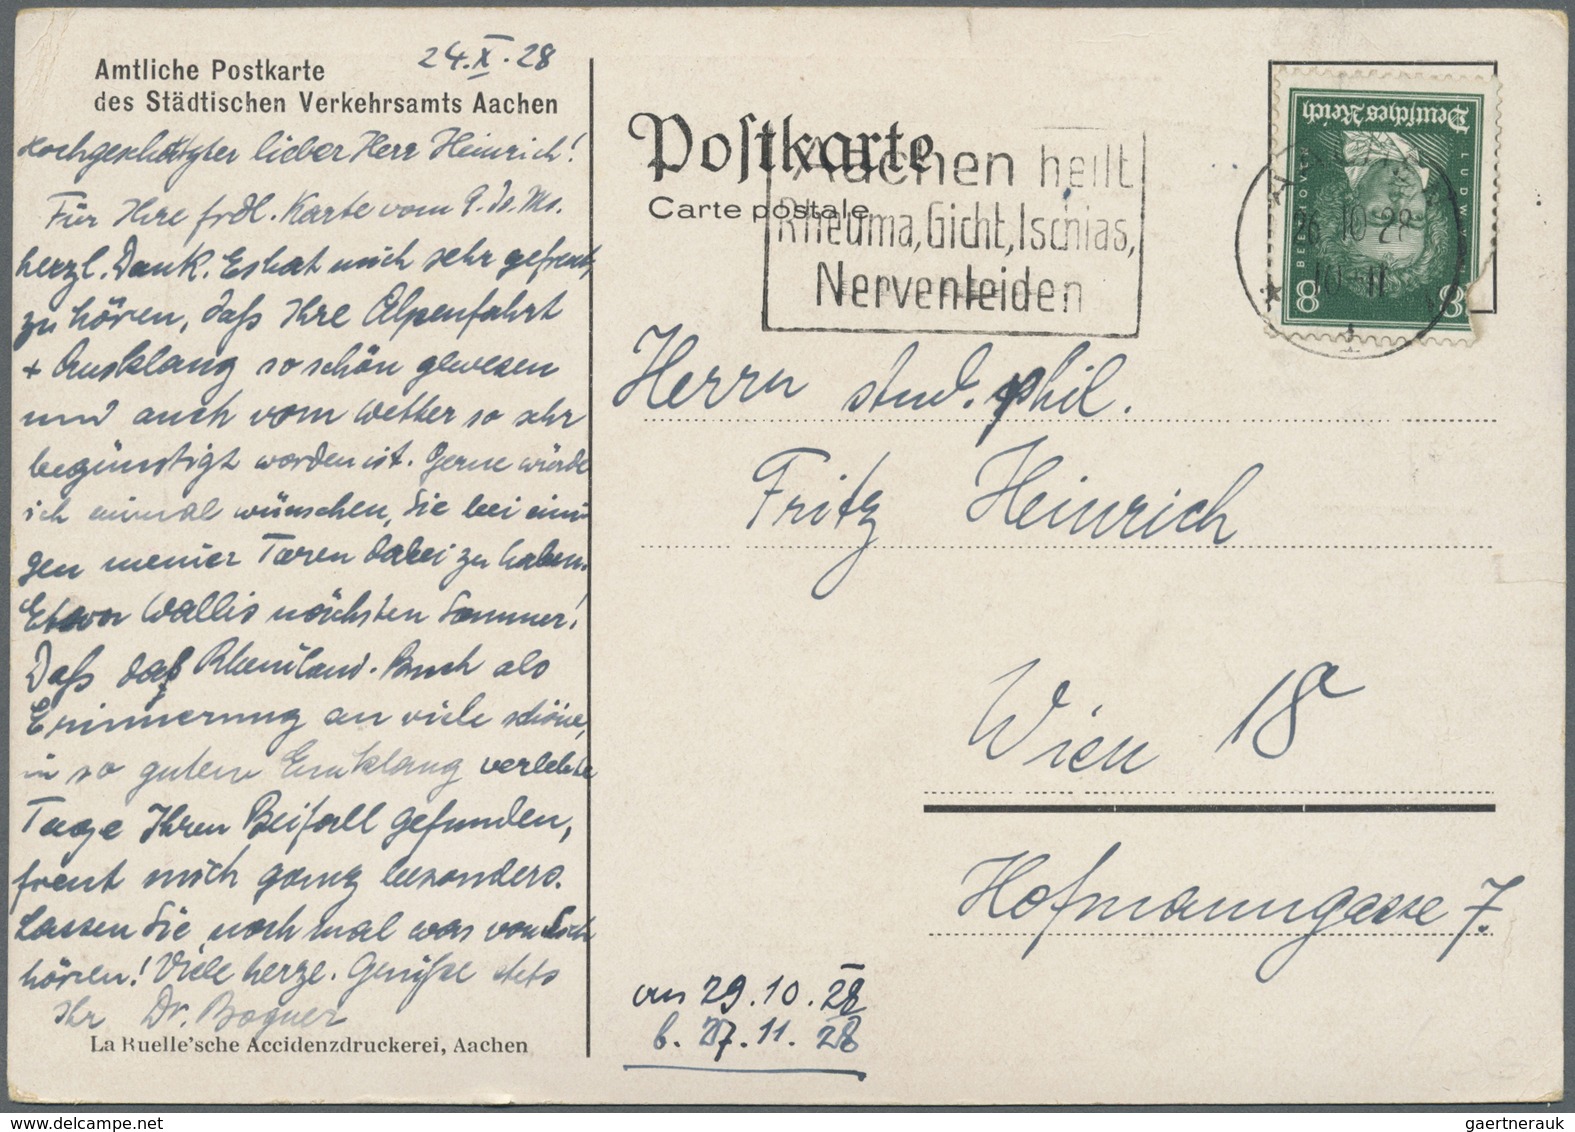 24.X.28
Amtliche Postkarte
des Städtischen Verkehrsamts Aachen
Hochgeschätzter lieber Herr Heinrich!
Für Ihre frdl. Karte vom 9. ds. Ms.
herzl. Dank. Es hat mich sehr gefreut,
zu hören, daß Ihre Alpenfahrt
+ Ausklang so schön gewesen
und auch vom Wetter so sehr
begünstigt worden ist. Gerne würde
ich einmal wünschen, Sie bei eini-
gen meiner Touren dabei zu haben.
Etwa Wallis nächsten Sommer!
Daß das Rheinland-Buch als
Erinnerung an viele schöne,
in so gutem Einklang verlebte
Tage Ihren Beifall gefunden,
freut mich ganz besonders.
Lassen Sie noch mal was von Sich
hören! Viele herzl. Grüße stets
Ihr Dr. Bogner
La Ruelle'sche Accidenzdruckerei, Aachen
Postkarte
Carte postale
Aachen heilt
Rheuma, Gicht, Ischias,
Nervenleiden
Deutsches Reich
LUDWIG V.
BEETHOVEN
8 8
26.10.28
10-11
Herrn stud. phil.
Fritz Heinrich
Wien 18
Hofmanngasse 7.
an 29.10.28
b. 27.11.28
gaertnerauk